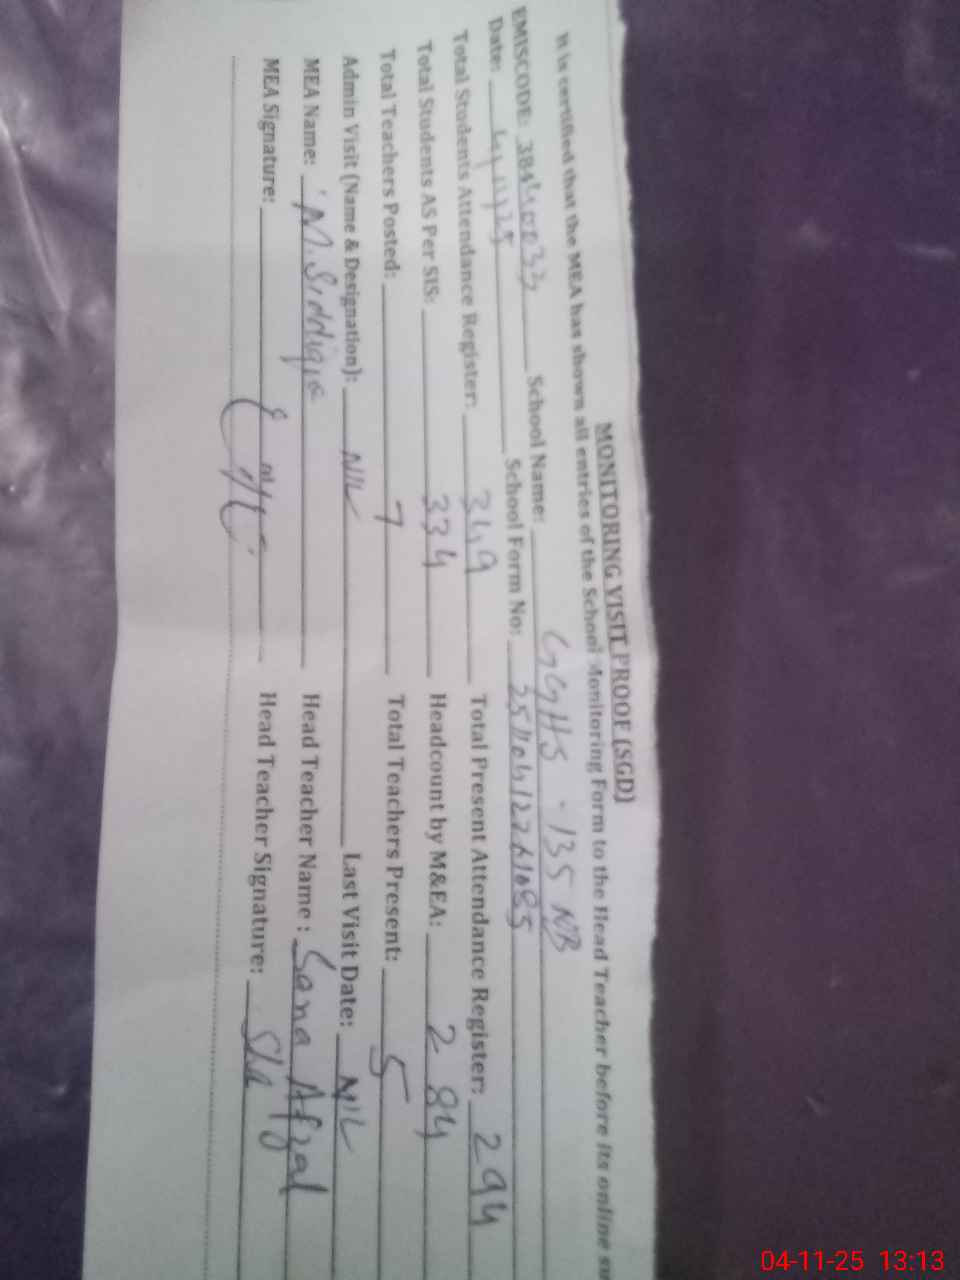 MONITORING VISIT PROOF (SGD)
It is certified that the MEA has shown all entries of the School Monitoring Form to the Head Teacher before its online
EMISCODE: 38440033 School Name: GGHS - 135 NB
Date: 4/11/25 School Form No:
Total Students Attendance Register: 349 Total Present Attendance Register: 294
Total Students AS Per SIS: 334 Headcount by M&EA: 284
Total Teachers Posted: 7 Total Teachers Present: 5
Admin Visit (Name & Designation): NIL Last Visit Date: NIL
MEA Name: M. Siddique Head Teacher Name : Sana Afzal
MEA Signature: Head Teacher Signature:
04-11-25 13:13